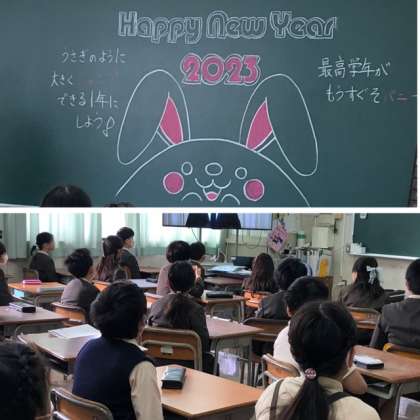 Happy New Year
2023
うさぎのように
大きく
できる1年に
しよう!
最高学年が
もうすぐそバニー